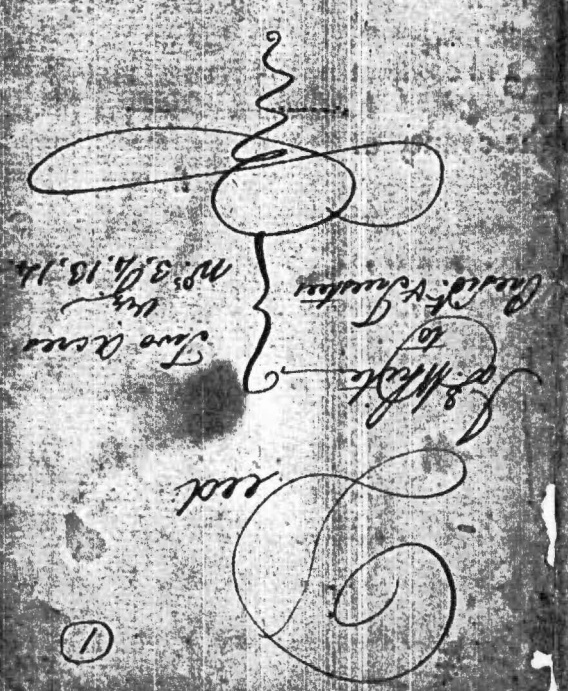 ①
Deed
Jas White
to
Presidt. & Trustees
Two acres
viz
Nos. 3, 4, 13, 14.